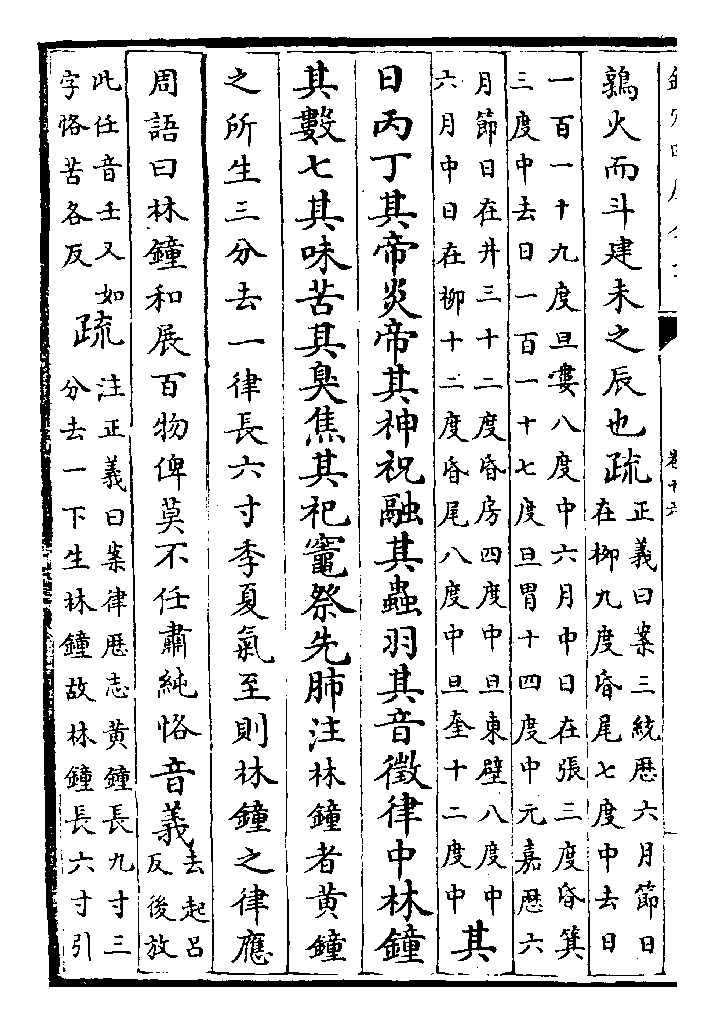 卷十六
鶉火而斗建未之辰也疏
正義曰案三統厯六月節日
在柳九度昏尾七度中去日
一百一十九度旦婁八度中六月中日在張三度昏箕
三度中去日一百一十七度旦胃十四度中元嘉厯六
月節日在井三十二度昏房四度中旦東壁八度中
六月中日在柳十二度昏尾八度中旦奎十二度中
其
日丙丁其帝炎帝其神祝融其蟲羽其音徵律中林鐘
其數七其味苦其臭焦其祀竈祭先肺注林鐘者黄鐘
之所生三分去一律長六寸季夏氣至則林鐘之律應
周語曰林鐘和展百物俾莫不任肅純恪音義
去起呂
反後放
此任音壬又如
字恪苦各反
疏
注正義曰案律厯志黄鐘長九寸三
分去一下生林鐘故林鐘長六寸引